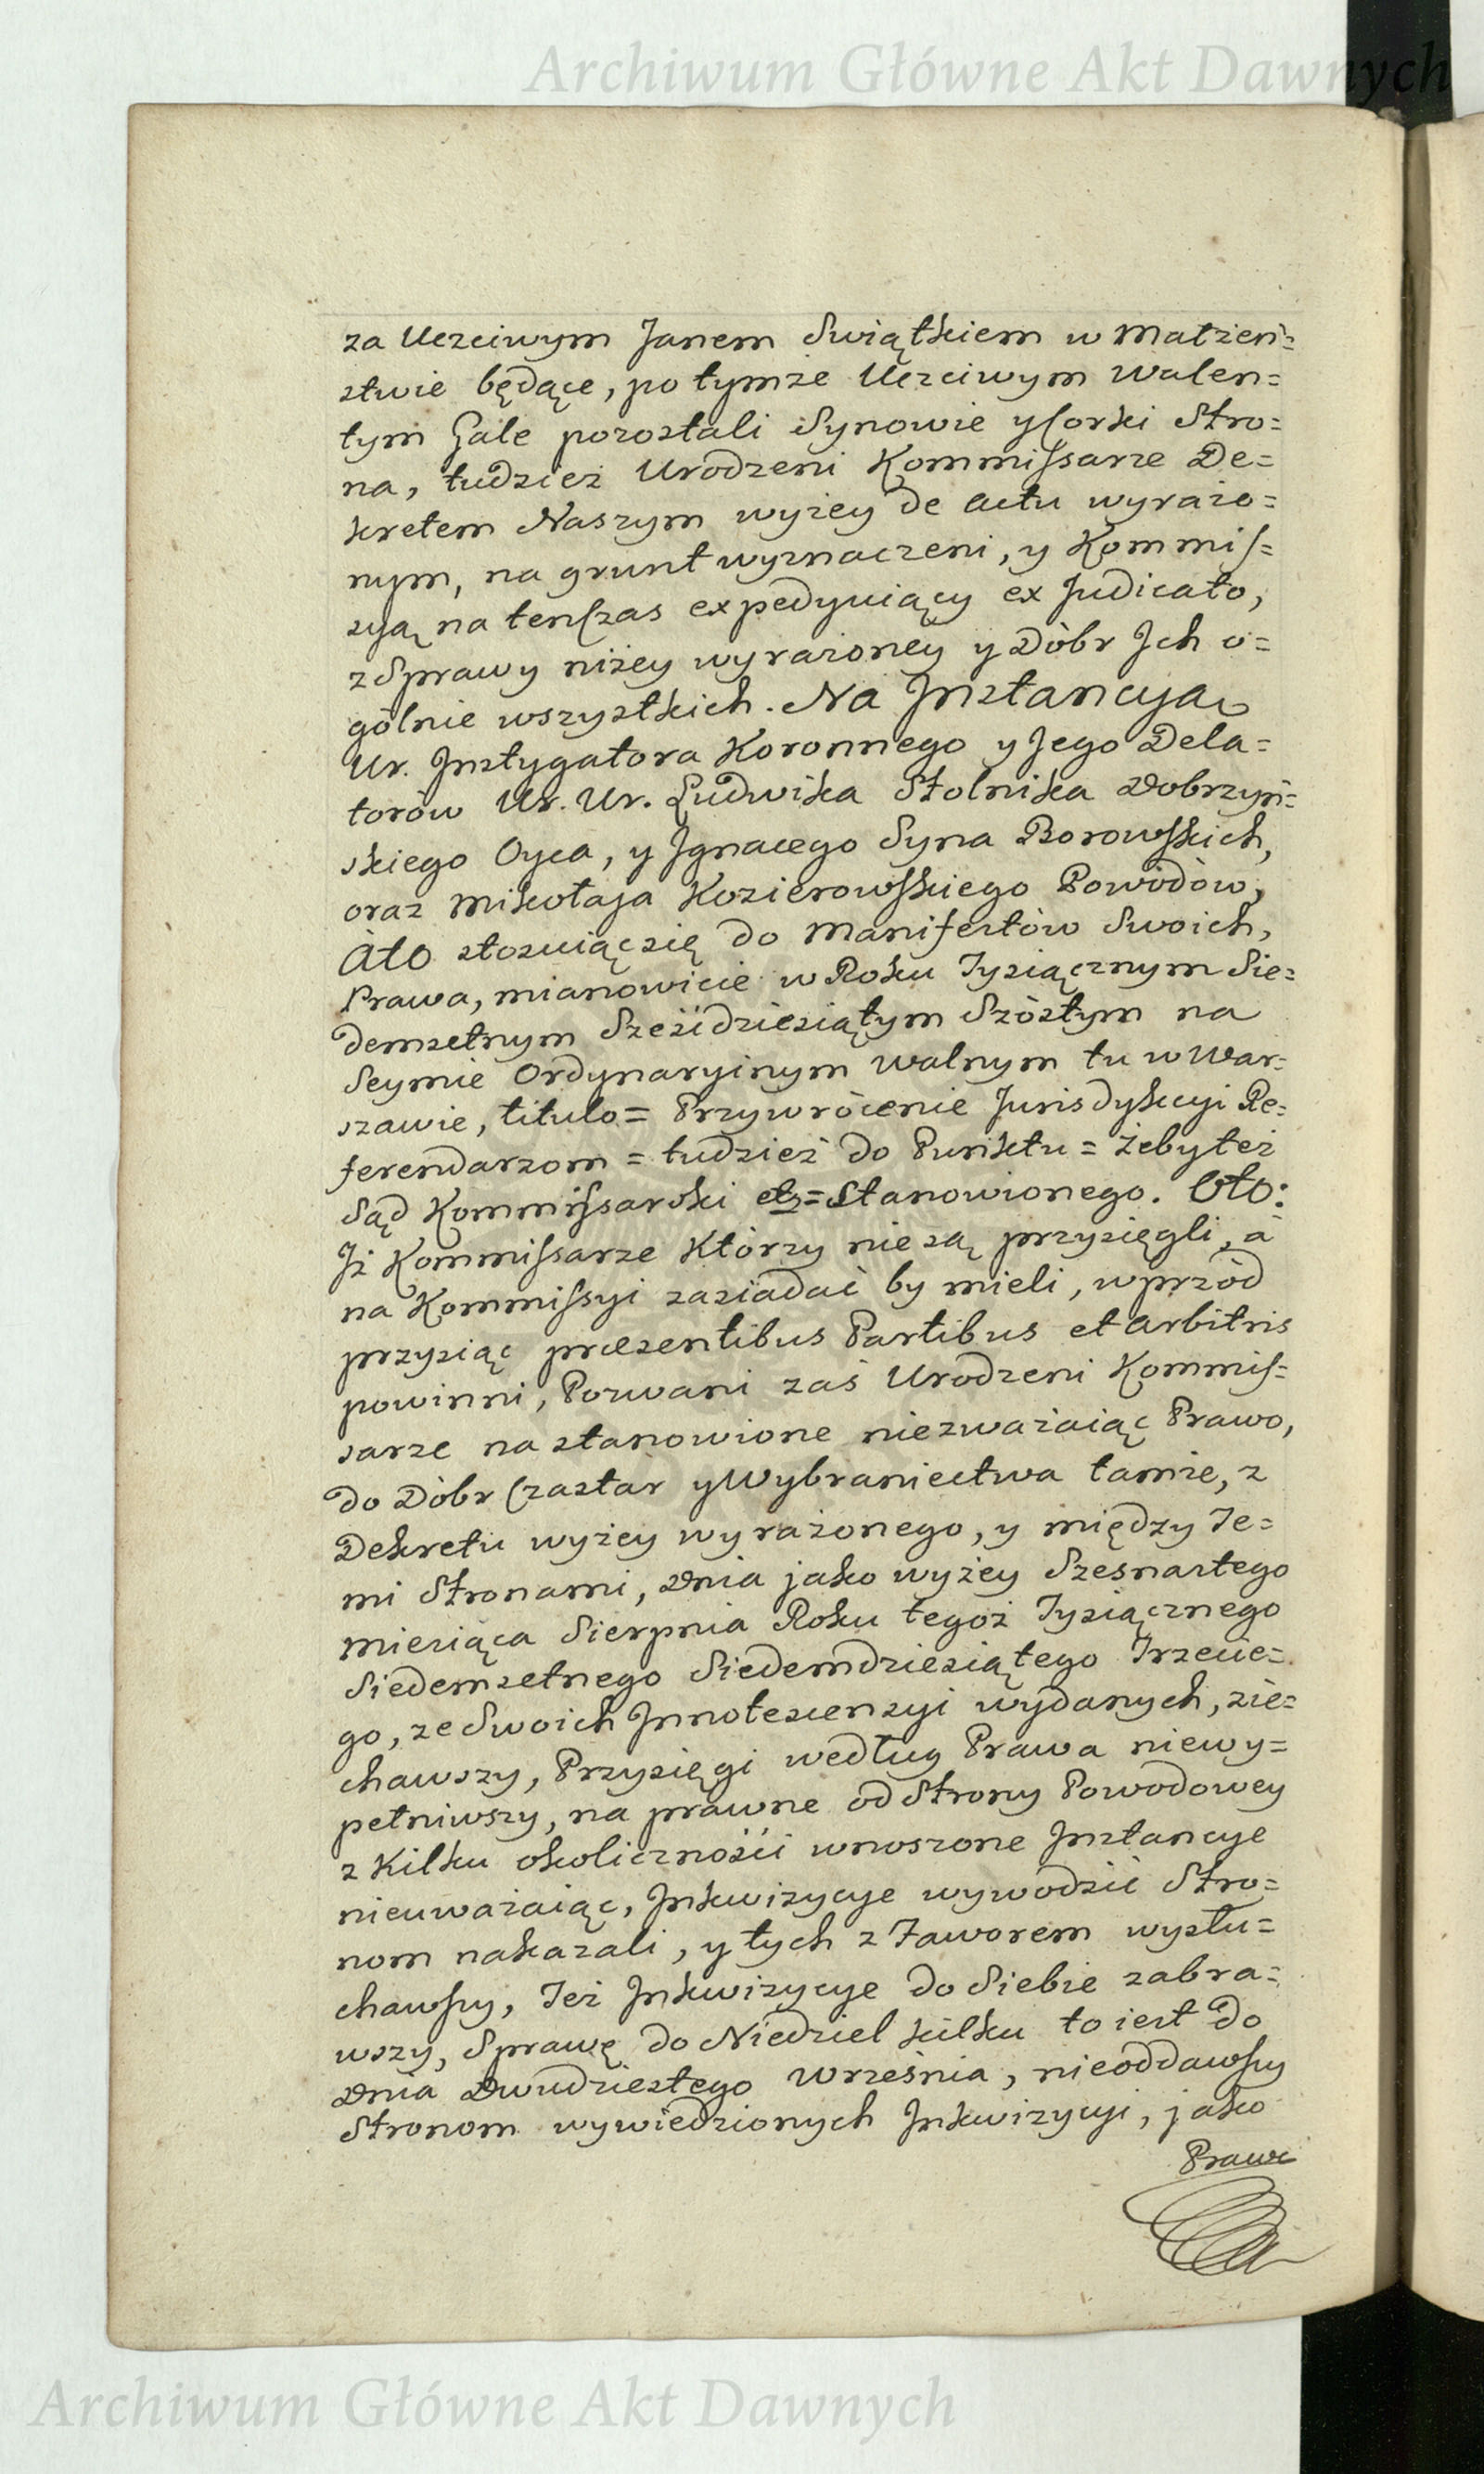 Archiwum Główne Akt Dawnych
za Uczciwym Janem Swiątkiem w Małżeń=
stwie będące, po tymże Uczciwym Walen=
tym Gale pozostali Synowie y Corki Stro=
na, tudzież Urodzeni Kommissarze De=
kretem Naszym wyżey de actu wyrażo=
nym, na grunt wyznaczeni, y Kommis=
syą na tenczas expedyuiący ex Judicato,
z Sprawy niżey wyrażoney y Dóbr Jch o=
gólnie wszystkich. Na Jnstancyą
Ur. Jnstygatora Koronnego y Jego Dela=
torów Ur. Ur. Ludwika Stolnika Dobrzyń=
skiego Oyca, y Jgnacego Syna Borowskich,
oraz Mikołaja Kozierowskiego Powodów,
Ato stosuiąc się do Manifestów Swoich,
Prawa, mianowicie w Roku Tysiącznym Sie=
demsetnym Sześćdziesiątym Szóstym na
Seymie Ordynaryinym Walnym tu w War=
szawie, titulo = Przywrócenie Jurisdykcyi Re=
ferendarzom = tudzież do Punktu = żebyteż
Sąd Kommissarski etc = Stanowionego. Oto:
Jż Kommissarze którzy nie są przysięgli, a
na Kommissyi zasiadać by mieli, wprzód
przysiąc præsentibus Partibus et arbitris
powinni, Pozwani zaś Urodzeni Kommis=
sarze na stanowione niezważaiąc Prawo,
do Dóbr Czastar y Wybraniectwa tamże, z
Dekretu wyżey wyrażonego, y między Te=
mi Stronami, Dnia jako wyżey Szesnastego
Miesiąca Sierpnia Roku tegoż Tysiącznego
Siedemsetnego Siedemdziesiątego Trzecie=
go, ze Swoich Jnnotescensyi wydanych, zie=
chawszy, Przysięgi według Prawa niewy=
pełniwszy, na prawne od Strony Powodowey
z kilku okoliczności wnoszone Jnstancye
nieuważaiąc, Jnkwizycye wywodzić Stro=
nom nakazali, y tych z Faworem wysłu=
chawszy, Też Jnkwizycye do Siebie zabra=
wszy, Sprawę do Niedziel kilku to iest do
Dnia Dwudziestego Września, nieoddawszy
Stronom wywiedzionych Jnkwizycyi, jako
Prawo
Archiwum Główne Akt Dawnych